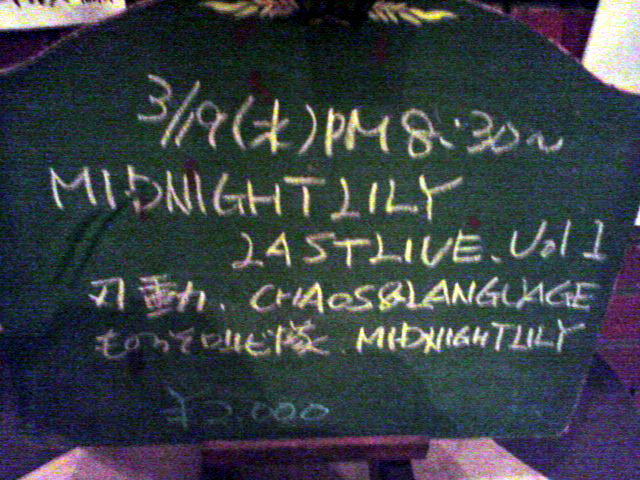 3/19(水)PM 8:30~
MIDNIGHT LILY
LAST LIVE. Vol 1
CHAOS&LANGUAGE
MIDNIGHT LILY
¥2.000